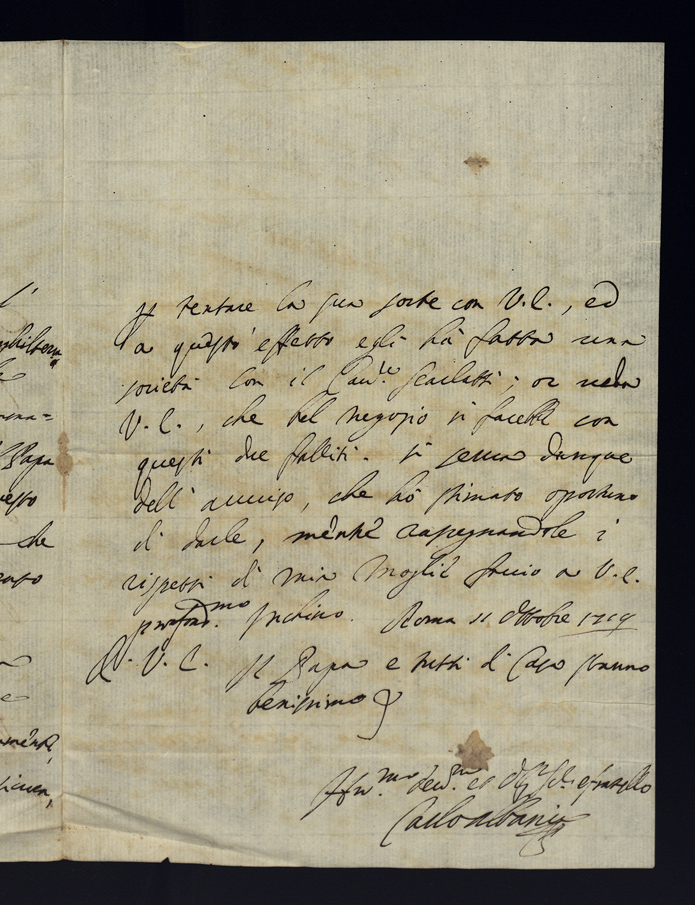 l'
nghilterra
p tentare la sua sorte con V.E., ed
a questo effetto egli hà fatta una
società con il Cav.le Scarlatti; or veda
V.E., che bel negozio si farebbe con
questi due falliti. si serva dunque
dell'avviso, che hò stimato opportuno
di darle, mentre rassegnandole i
rispetti di mia Moglie faccio a V.E.
profond.mo Inchino. Roma 11 Ottobre 1719
D. V.E. Il Papa e tutti di Casa stanno
benissimo
che
il Papa
questo
Aff.mo dev.mo et obl.mo S.re e fratello
Carlo Albani